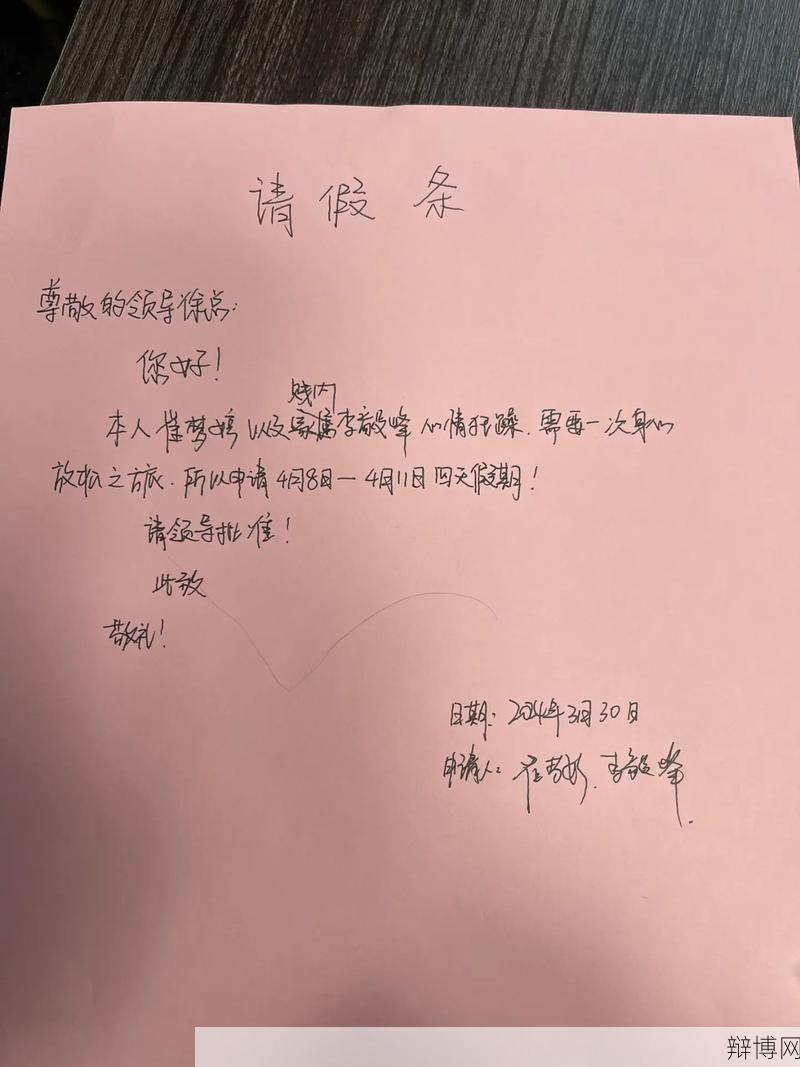 请假条
尊敬的领导徐总:
您好!
贱内
本人崔梦婷以及家属李毅峰心情狂躁.需要一次身心
放松之旅.所以申请4月8日一4月11日四天假期!
请领导批准!
此致
敬礼!
日期:2024年3月30日
申请人:崔梦婷.李毅峰.
辩博网